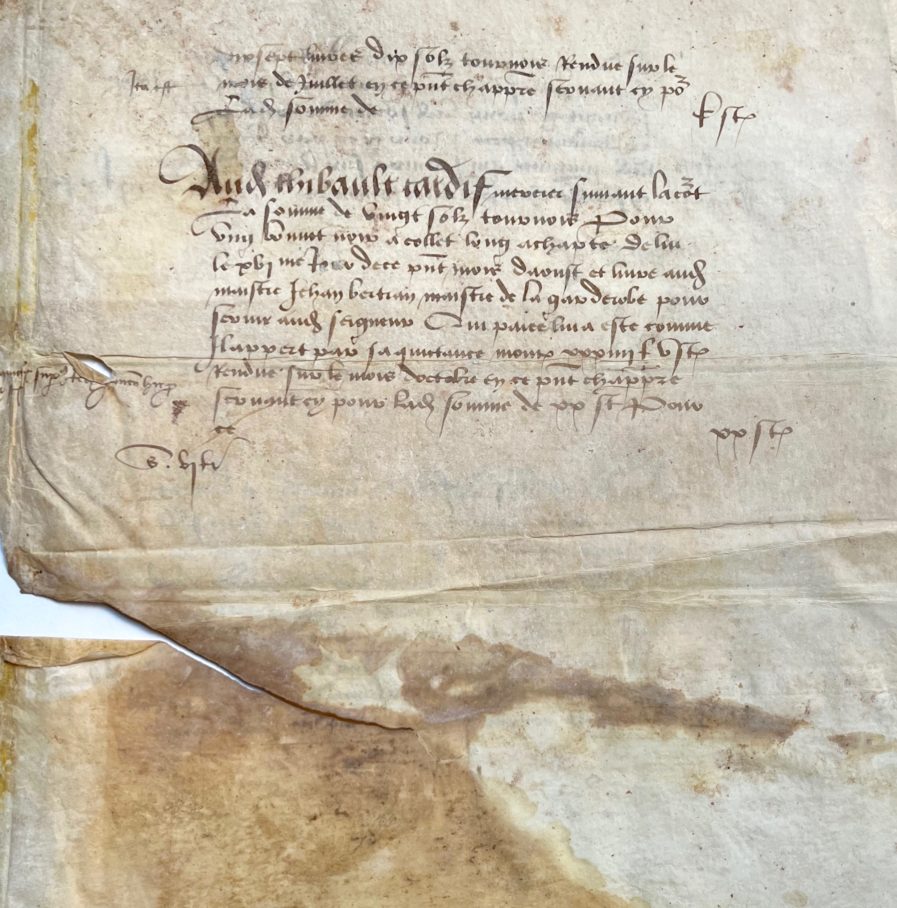 dixsept livres dix solz tournois Rendue sur le
mois de Juillet en ce pnt chappre servant cy por
Ita est
Lad somme de
L st
Aud thibault tardif mercier suivant la cot
La somme de vingt solz tournois Pour
ung bonnet noir a collet long achapte de luy
le xvi me Jour de ce pnt mois daoust et livre aud
maistre Jehan bertran maistre de la garderobe pour
servir aud seigneur Qui paiee luy a este comme
Il appert par sa quictance mont xxxiiii L v st
Rendue sur le mois doctobre en ce pnt chappre
servant cy pour lad somme de xx st Pour
ce
xx st